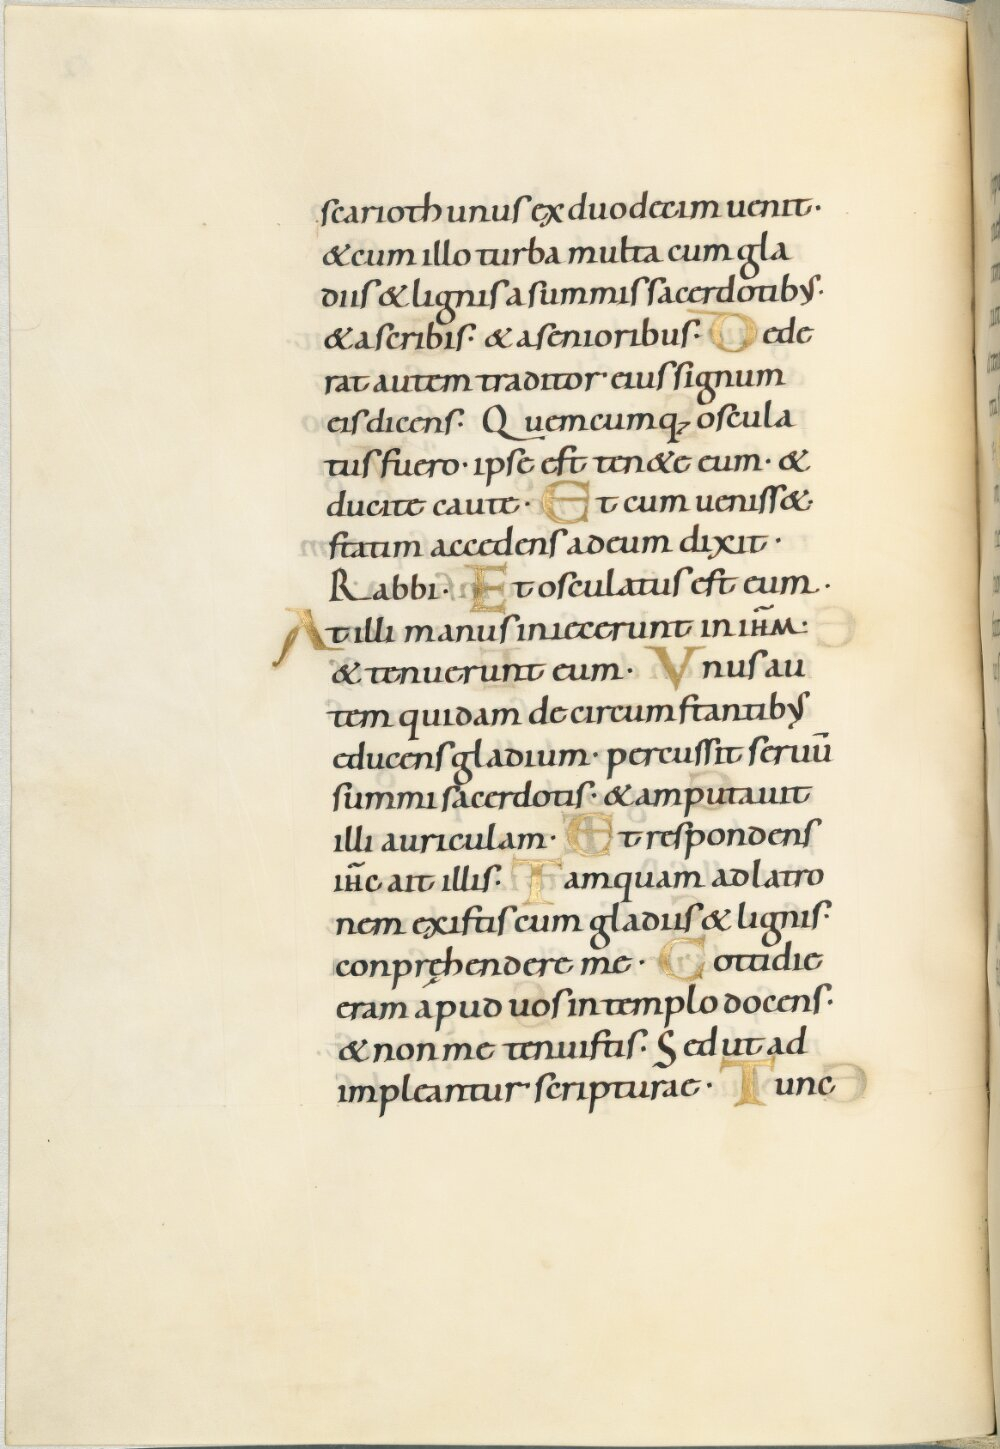 scarioth unus ex duodecim uenit·
& cum illo turba multa cum gla
diis & lignis a summis sacerdotib;·
& a scribis· & a senioribus· Dede
rat autem traditor eius signum
eis dicens· Quemcumq; oscula
tus fuero· ipse est ten&e eum· &
ducite caute· Et cum ueniss&·
statim accedens ad eum dixit·
Rabbi· Et osculatus est eum·
At illi manus iniecerunt in ih̅m·
& tenuerunt eum· Vnus au
tem quidam de circumstantib;
educens gladium· percussit seruū
summi sacerdotis· & amputauit
illi auriculam· Et respondens
ih̅c ait illis· Tamquam ad latro
nem existis cum gladiis & lignis·
conpręhendere me· Cottidie
eram apud uos in templo docens·
& non me tenuistis· Sed ut ad
impleantur scripturae· Tunc